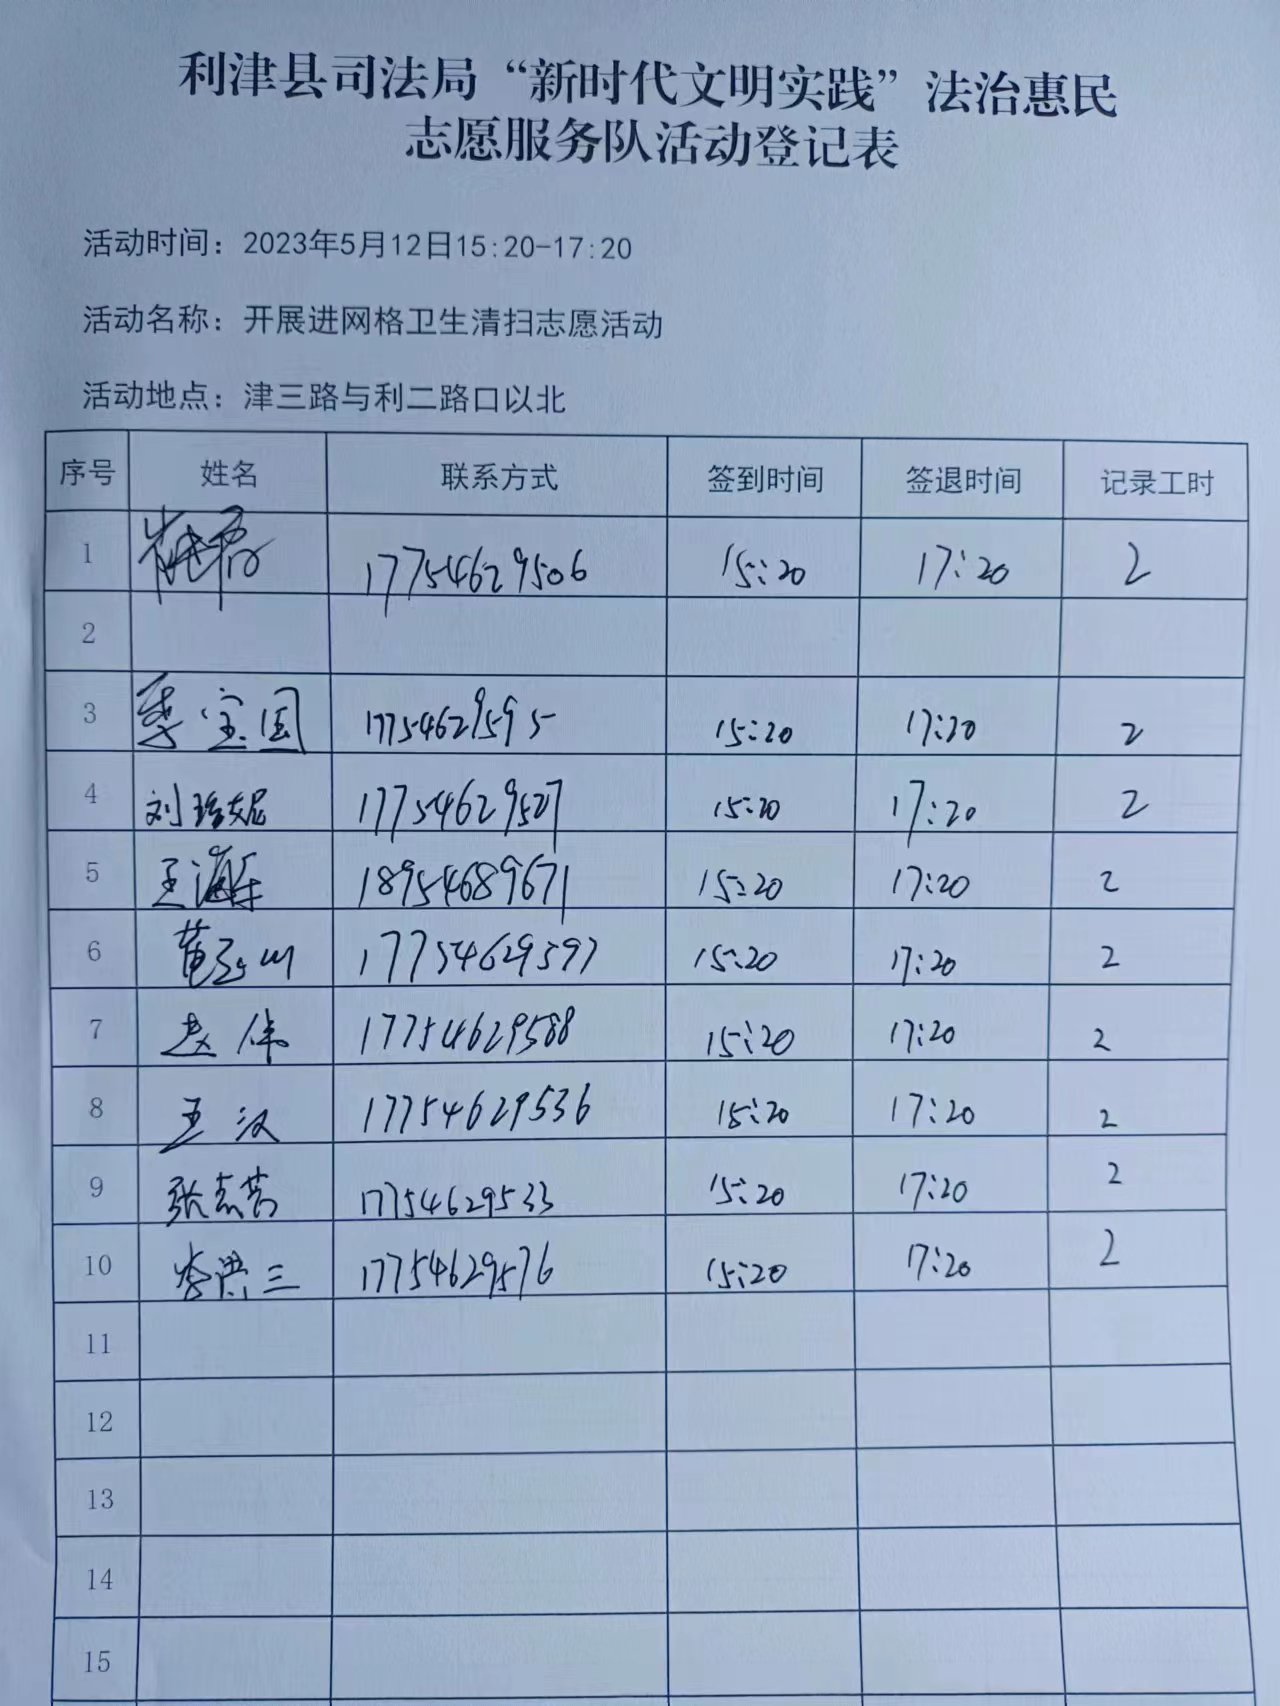 利津县司法局“新时代文明实践”法治惠民
志愿服务队活动登记表
活动时间：2023年5月12日15:20-17:20
活动名称：开展进网格卫生清扫志愿活动
活动地点：津三路与利二路口以北
序号 姓名 联系方式 签到时间 签退时间 记录工时
1 17754629506 15:20 17:20 2
2
3 李宝国 17754629595 15:20 17:20 2
4 17754629527 15:20 17:20 2
5 王海军 18954689671 15:20 17:20 2
6 17754629597 15:20 17:20 2
7 赵伟 17754629588 15:20 17:20 2
8 王汉 17754629536 15:20 17:20 2
9 17754629533 15:20 17:20 2
10 李洪三 17754629576 15:20 17:20 2
11
12
13
14
15